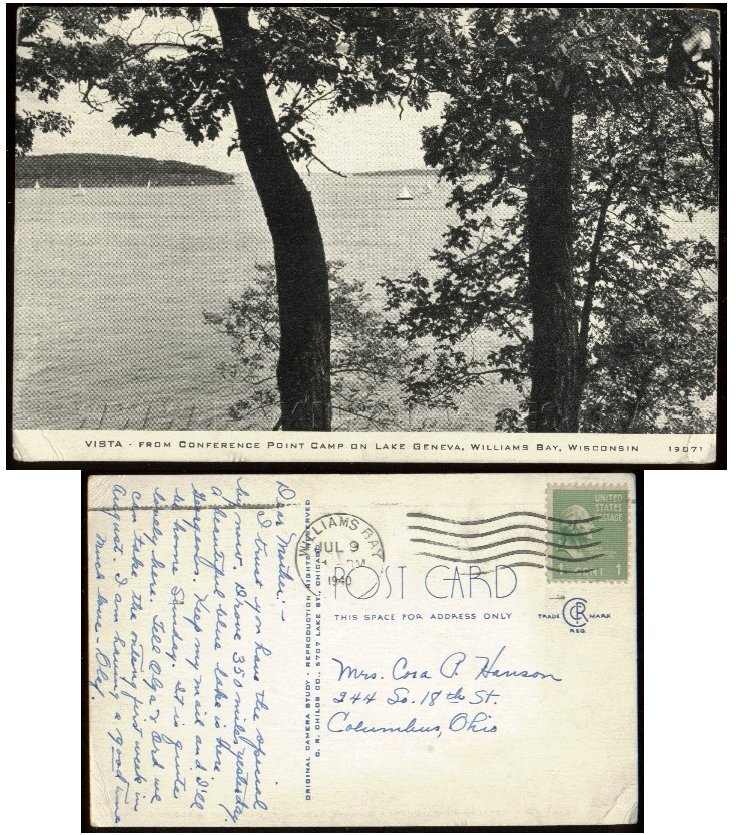 VISTA - FROM CONFERENCE POINT CAMP ON LAKE GENEVA, WILLIAMS BAY, WISCONSIN 19071
Dear Mother:—
I trust you have the special
by now. Drove 350 miles yesterday.
A beautiful blue lake is here
Keep my mail and I'll
be home Sunday. It is quite
lovely here. Tell Olga & Ord we
can take the outing first week in
August. I am having a good time
Much love - Oley.
ORIGINAL CAMERA STUDY - REPRODUCTION RIGHTS RESERVED
C. R. CHILDS CO., 5707 LAKE ST., CHICAGO
WILLIAMS BAY
JUL 9
PM
1940
UNITED
STATES
POSTAGE
1 CENT 1
POST CARD
THIS SPACE FOR ADDRESS ONLY
TRADE CRC MARK
REG
Mrs. Cora P. Hanson
244 So. 18th St.
Columbus, Ohio